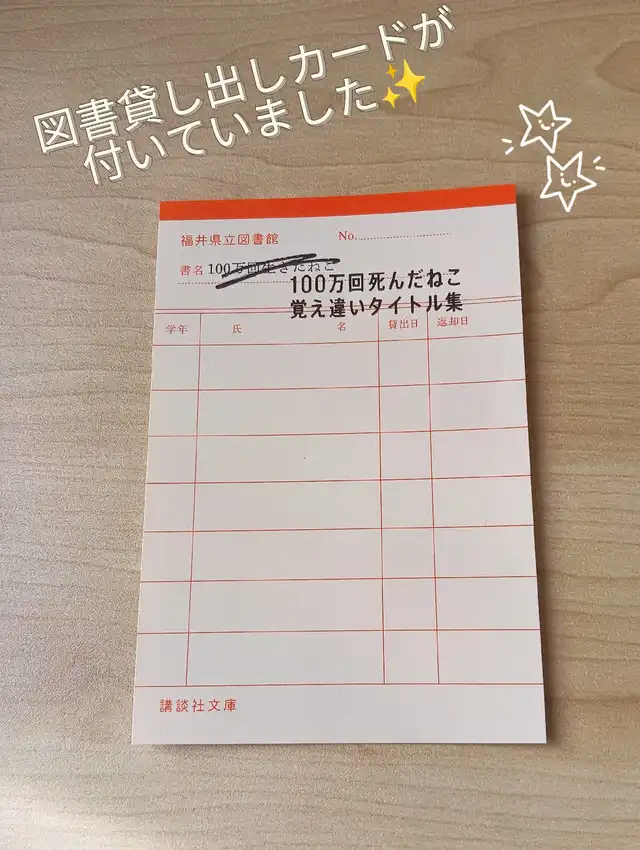 図書貸し出しカードが
付いていました✨
福井県立図書館
No.
書名 100万回生きたねこ
100万回死んだねこ
覚え違いタイトル集
学年 氏 名 貸出日 返却日
講談社文庫